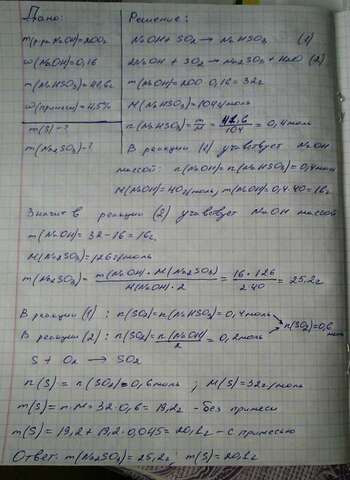 Дано:
Решение:
m(р-ра NaOH)=200г
NaOH + SO₂ → NaHSO₃ (1)
w(NaOH)=0,16
2NaOH + SO₂ → Na₂SO₃ + H₂O (2)
m(NaHSO₃)=41,6г
m(NaOH)=200·0,16=32г
w(примеси)=4,5%
M(NaHSO₃)=104г/моль
m(S)-?
n(NaHSO₃)=m/M=41,6/104=0,4моль
m(Na₂SO₃)-?
В реакции (1) учавствует NaOH
массой: n(NaOH)=n(NaHSO₃)=0,4моль
M(NaOH)=40г/моль, m(NaOH)=0,4·40=16г
Значит в реакции (2) учавствует NaOH массой
m(NaOH)=32-16=16г
M(Na₂SO₃)=126г/моль
m(Na₂SO₃)=m(NaOH)·M(Na₂SO₃)/M(NaOH)·2=16·126/2·40=25,2г
В реакции (1): n(SO₂)=n(NaHSO₃)=0,4моль
n(SO₂)=0,6 моль
В реакции (2): n(SO₂)=n(NaOH)/2=0,2моль
S + O₂ → SO₂
n(S)=n(SO₂)=0,6моль; M(S)=32г/моль
m(S)=n·M=32·0,6=19,2г -без примеси
m(S)=19,2+19,2·0,045=20,1г -с примесью
Ответ: m(Na₂SO₃)=25,2г, m(S)=20,1г